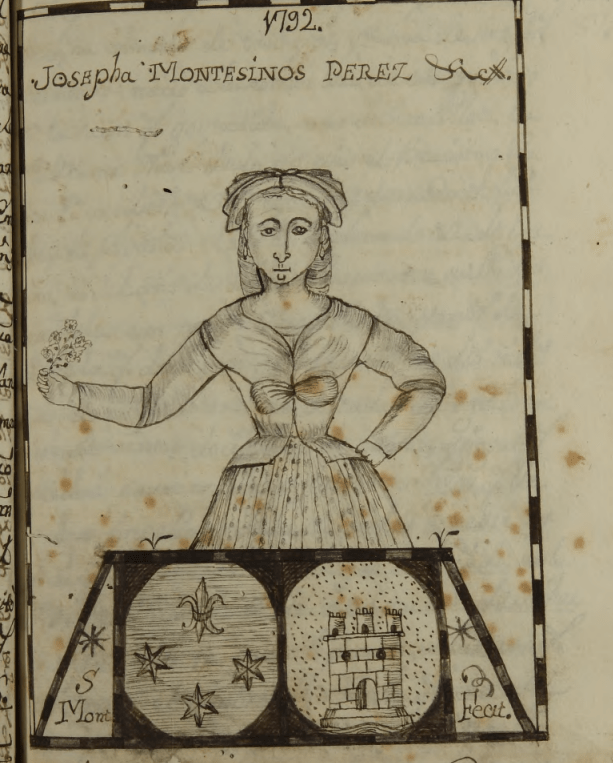 1792.
Josepha MONTESINOS PEREZ
S
Mont.
Fecit.